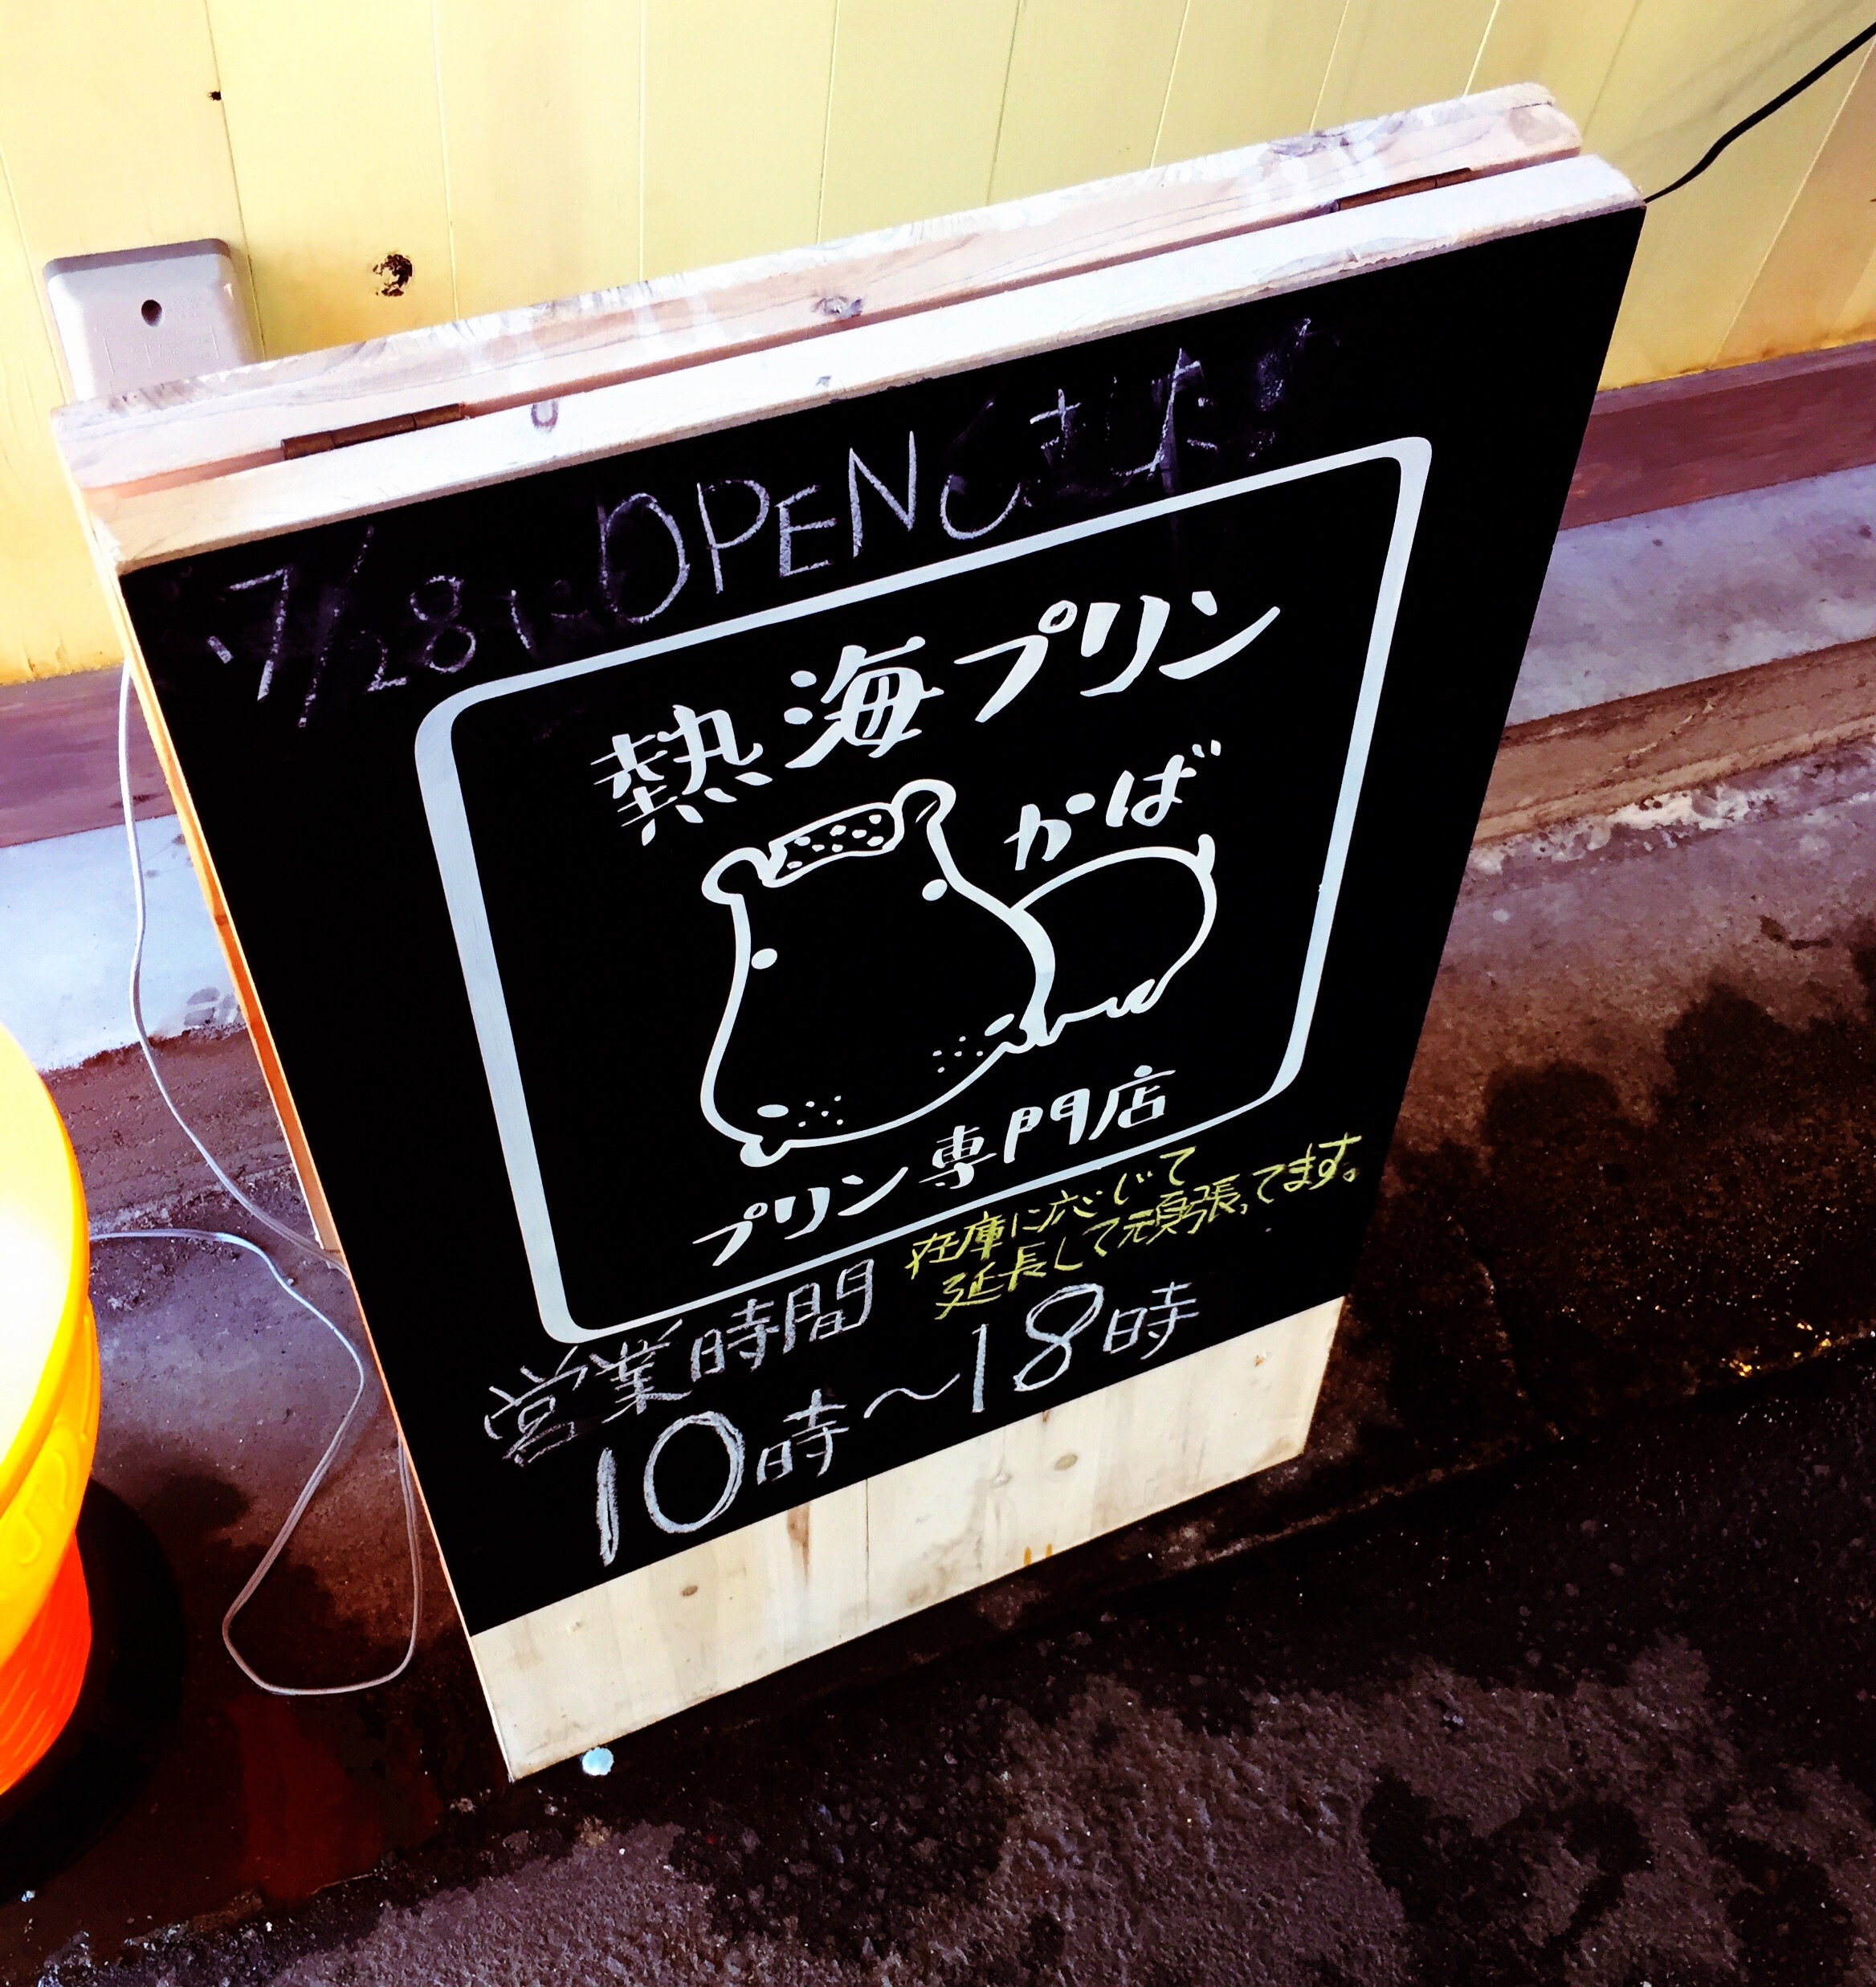 7/28にOPENしました
熱海プリン
かば
プリン専門店
在庫に応じて
延長して頑張ってます。
営業時間
10時～18時